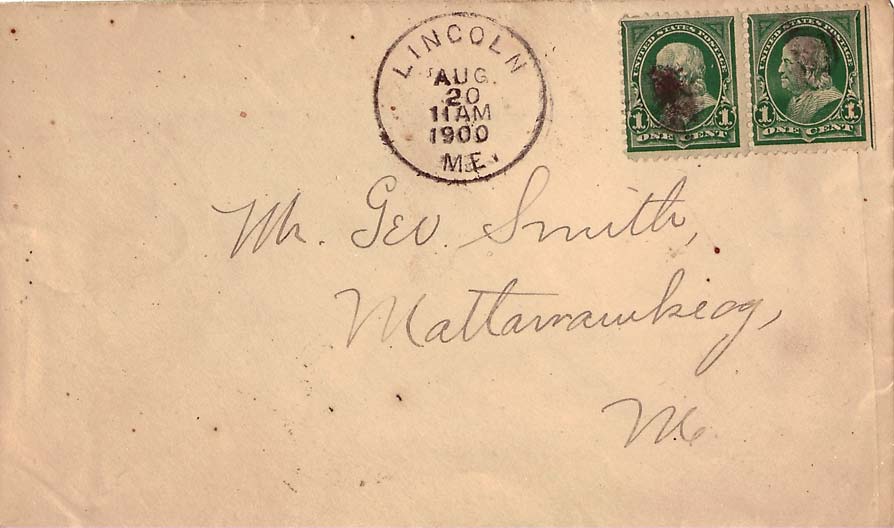 LINCOLN
AUG.
20
11AM
1900
ME.
UNITED STATES POSTAGE
1 1
ONE CENT
UNITED STATES POSTAGE
1 1
ONE CENT
Mr. Geo. Smith,
Mattawamkeag,
Me